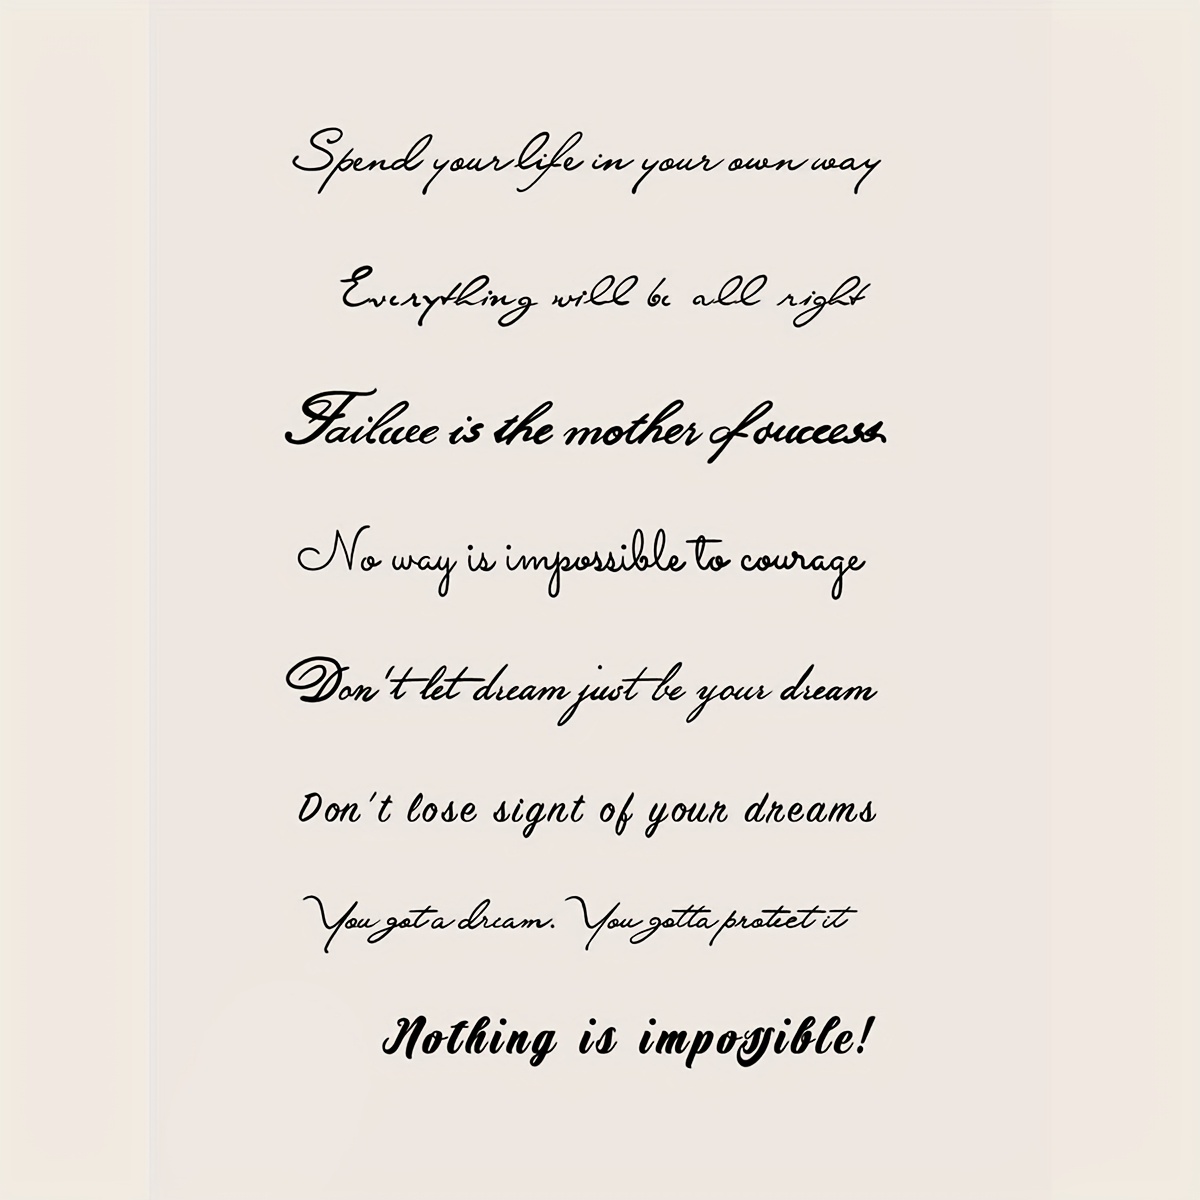 Spend your life in your own way
Everything will be all right
Failuee is the mother of success
No way is impossible to courage
Don't let dream just be your dream
Don't lose signt of your dreams
You got a dream. You gotta protect it
Nothing is impossible!